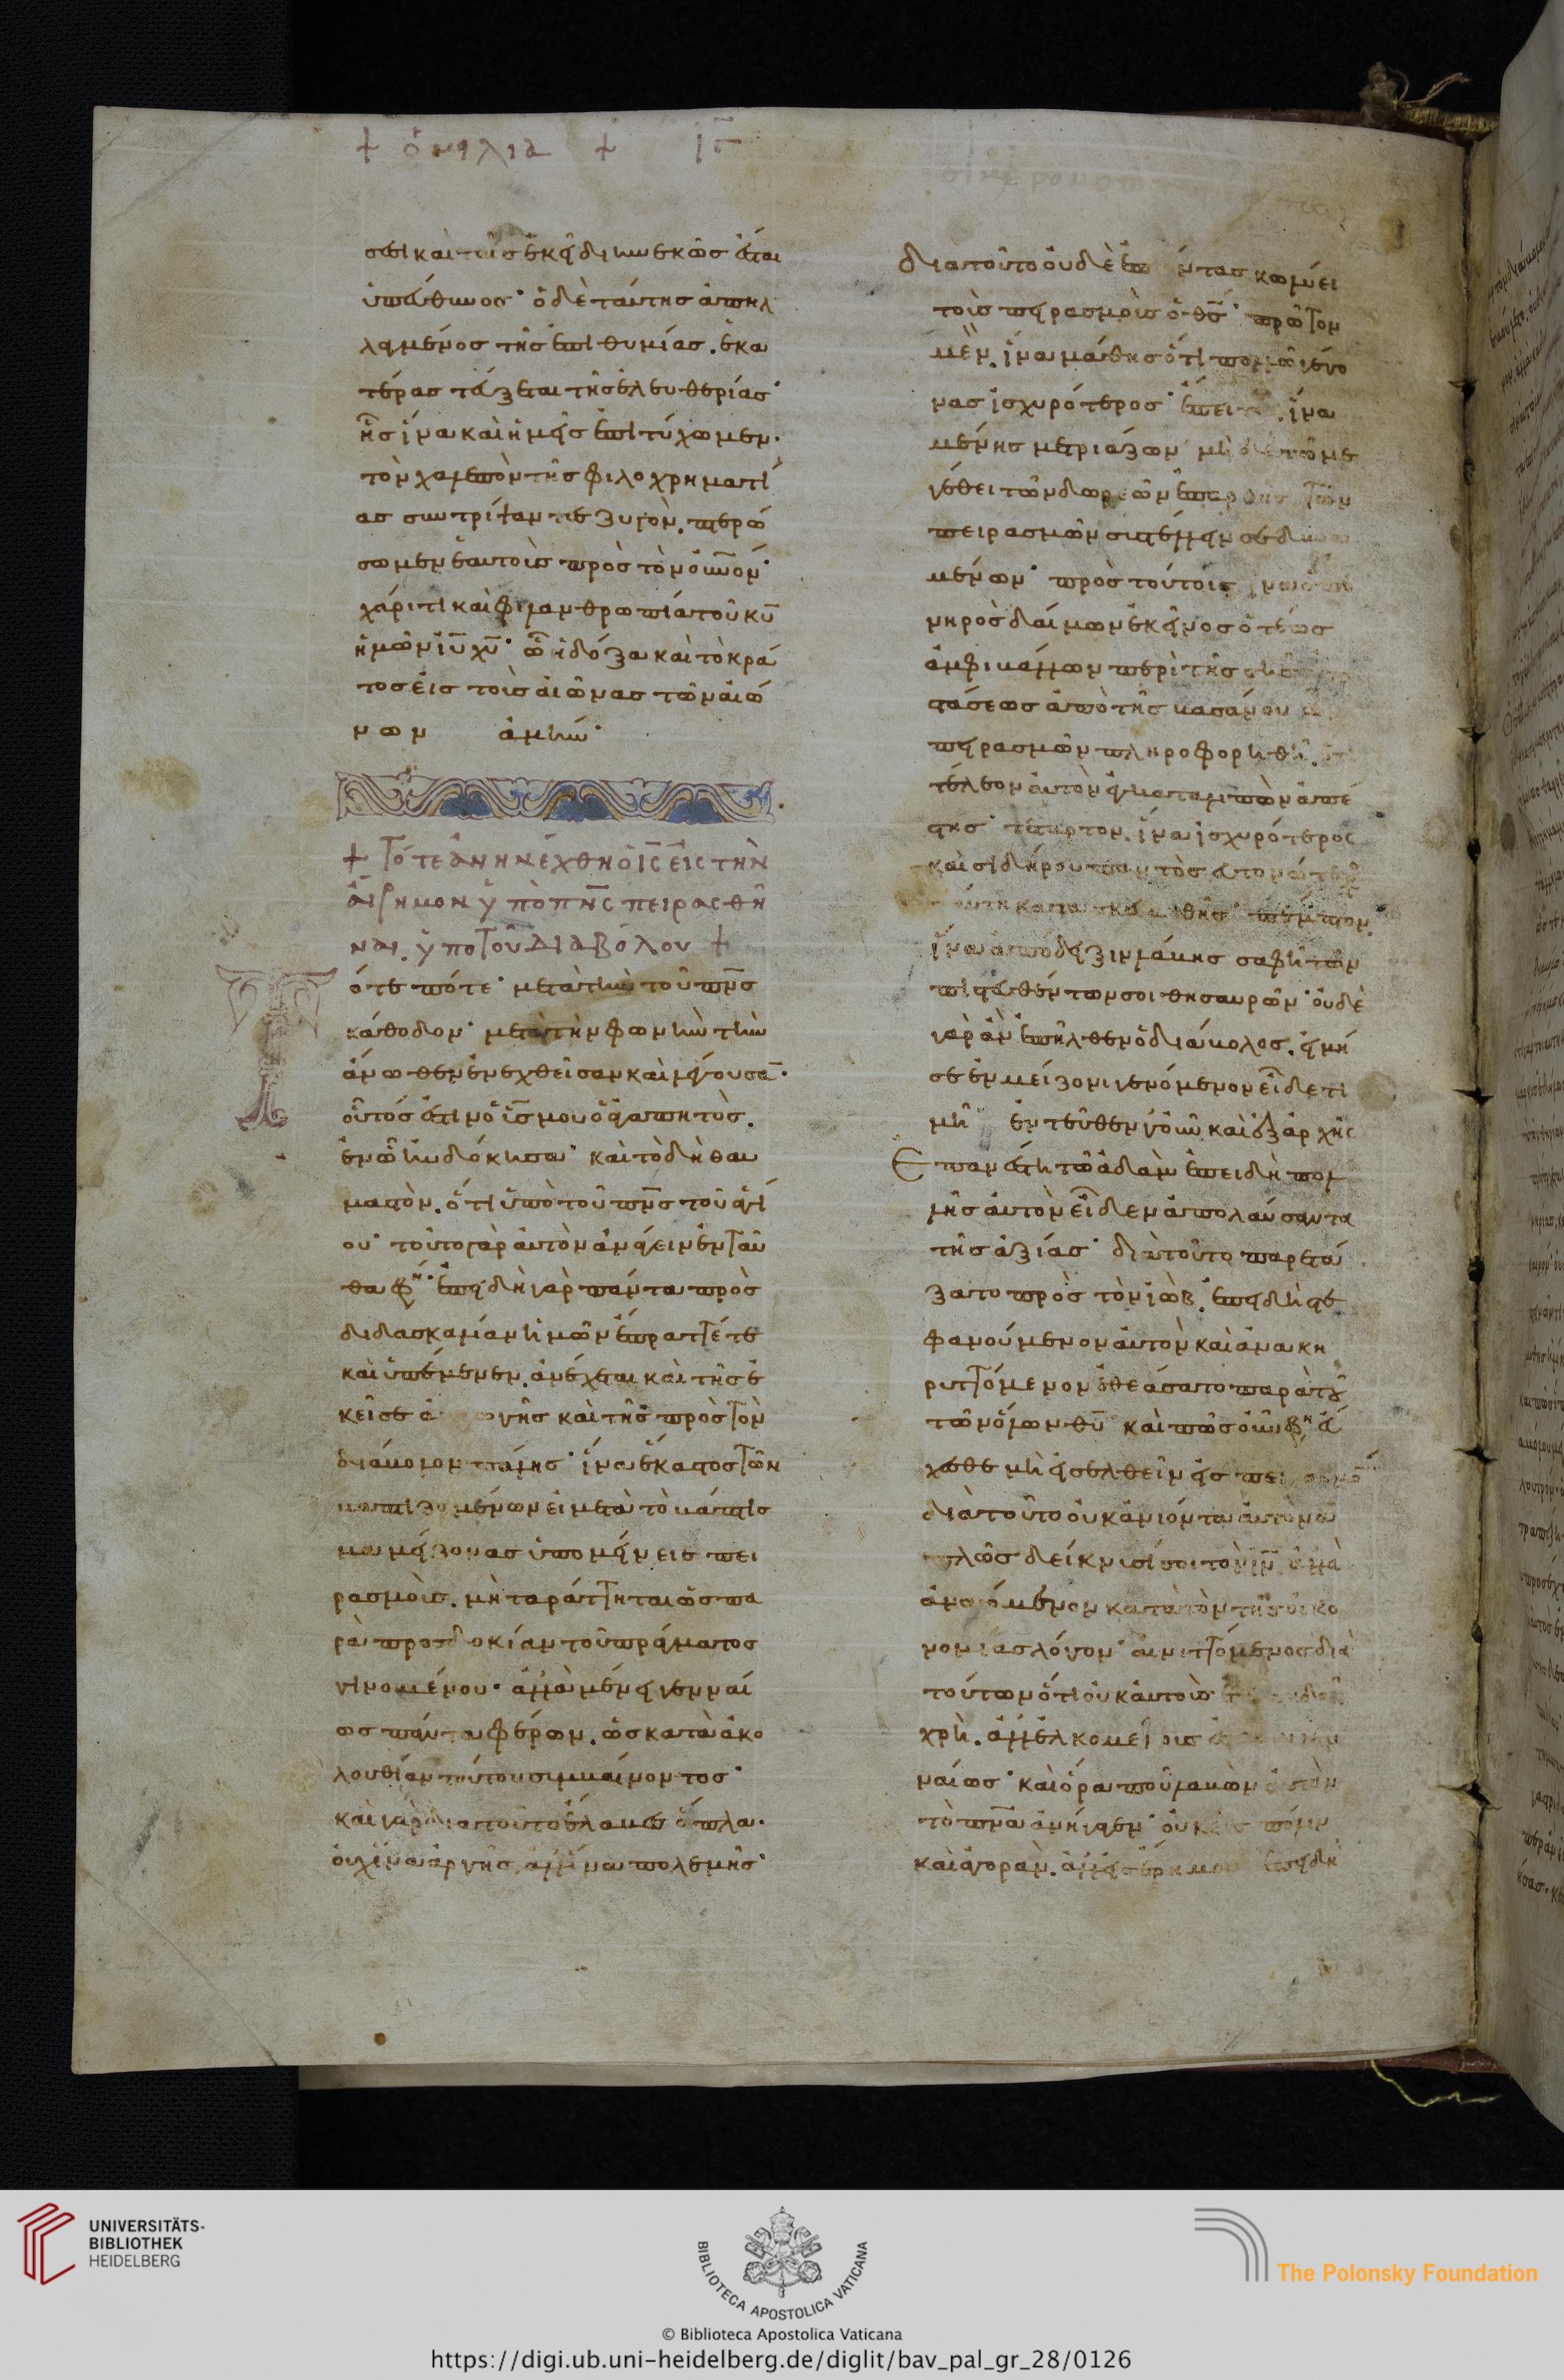 + ὁμιλία + ιγ
σει καὶ ταῖς ἐκεῖ δικαίως ἔσται
ὑπεύθυνος· ὁ δὲ ταύτης ἀπηλ
λαγμένος τῆς ἐπιθυμίας. ἑκα
τέρας τεύξεται τῆς ἐλευθερίας·
ἧς ἵνα καὶ ἡμεῖς ἐπιτύχωμεν.
τὸν χαλεπὸν τῆς φιλοχρηματί
ας συντρίψαντες ζυγὸν. πτερώ
σωμεν ἑαυτοὺς πρὸς τὸν οὐνον·
χάριτι καὶ φιλανθρωπία τοῦ κυ
ἡμῶν ιυ χυ· ὧ ἡ δόξα καὶ τὸ κρά
τος εἰς τοὺς αἰῶνας τῶν αἰώ
νων ἀμήν·
+ Τότε ἀνηνέχθη ὁ ις εἰς τὴν
ἔρημον ὑπὸ πνς πειρασθῆ
ναι. ὑπο τοῦ διαβόλου +
Τότε πότε· μετὰ τὴν τοῦ πνς
κάθοδον· μετὰ τὴν φωνὴν τὴν
ἄνωθεν ἐνεχθεῖσαν καὶ λέγουσα·
οὗτός ἐστιν ὁ υς μου ὁ ἀγαπητὸς.
ἐν ὧ ηὐδόκησα· καὶ τὸ δὴ θαυ
μαστὸν. ὅτι ὑπὸ τοῦ πνς τοῦ ἁγί
ου· τοῦτο γὰρ αὐτὸν ἀνάγειν ἐνταῦ
θα φη· ἐπειδὴ γὰρ πάντα πρὸς
διδασκαλίαν ἡμῶν ἔπραττέ τε
καὶ ὑπέμενεν. ἀνέχεται καὶ τῆς ἐ
κεῖσε ἀγωγῆς καὶ τῆς πρὸς τὸν
διάβολον πάλης· ἵνα ἕκαστος τῶν
βαπτιζομένων εἰ μετὰ τὸ βάπτισ
μα μείζονας ὑπομένεις πει
ρασμοὺς. μὴ ταράττηται ὡς πα
ρὰ προσδοκίαν τοῦ πράγματος
γινομένου· ἀλλὰ μένη γενναί
ως πάντα φέρων. ὡς κατὰ ἀκο
λουθίαν τούτου συμβαίνοντος·
καὶ γὰρ διατοῦτο ἔλαβες ὅπλα.
οὐχ ἵνα ἀργῆς. ἀλλ ἵνα πολεμῆς·
διατοῦτο οὐδὲ ἐπιόντας κωλύει
τοὺς πειρασμοὺς ὁ θς· πρῶτον
μὲν. ἵνα μάθης ὅτι πολλῶ γέγο
νας ἰσχυρότερος· ἔπειτα. ἵνα
μένης μετριάζων μηδὲ τῶ με
γέθει τῶν δωρεῶν ἐπαρθῆς τῶν
πειρασμῶν συστέλλειν σε δυνα
μένων· πρὸς τούτοις ἵνα ὁ πο
νηρὸς δαίμων ἐκεῖνος ὁ τέως
ἀμφιβάλλων περὶ τῆς σῆς ἀπο
στάσεως ἀπὸ τῆς βασάνου τῶν
πειρασμῶν πληροφορηθῆ. ὅτι
τέλεον αὐτὸν ἐγκαταλιπὼν ἀπέ
στης· τέταρτον. ἵνα ἰσχυρότερος
καὶ σιδήρου παντὸς εὐτονώτερος
ταύτη κατασκευασθῆς· πέμπτον.
ἵνα ἀπόδειξιν λάβης σαφῆ τῶν
πιστευθέντων σοι θησαυρῶν· οὐδὲ
γὰρ ἂν ἐπῆλθεν ὁ διάβολος. εἰ μή
σε ἐν μείζονι γενόμενον εἶδε τι
μῆ ἐντεῦθεν γοῦν καὶ ἐξ ἀρχῆς
ἐπανέστη τῶ ἀδὰμ ἐπειδὴ πολ
λῆς αὐτὸν εἶδεν ἀπολαύσαντα
τῆς ἀξίας· διὰ τοῦτο παρετά
ξατο πρὸς τὸν ἰώβ. ἐπειδὴ στε
φανούμενον αὐτὸν καὶ ἀνακη
ρυττόμενον ἐθεάσατο παρὰ τοῦ
τῶν ὅλων θυ καὶ πῶς οὖν φη εὔ
χεσθε μὴ εἰσελθεῖν εἰς πειρασμὸ
διὰ τοῦτο οὐκ ἀνιόντα αὐτὸν ἁ
πλῶς δείκνυσί σοι τὸν ιν ἀλλὰ
ἀναγόμενον κατὰ τὸν τῆς οἰκο
νομίας λόγον· αἰνιττόμενος διὰ
τούτων ὅτι οὐκ αὐτοὺς ἐπιπηδᾶν
χρὴ. ἀλλ ἑλκομένους ἑστάναι γεν
ναίως· καὶ ὅρα ποῦ λαβὼν αὐτὸν
τὸ πνα ἀνήγαγεν· οὐκ εἰς πόλιν
καὶ ἀγορὰν. ἀλλ εἰς ἔρημον ἐπειδὴ
UNIVERSITÄTS-
BIBLIOTHEK
HEIDELBERG
BIBLIOTECA APOSTOLICA VATICANA
The Polonsky Foundation
© Biblioteca Apostolica Vaticana
https://digi.ub.uni-heidelberg.de/diglit/bav_pal_gr_28/0126